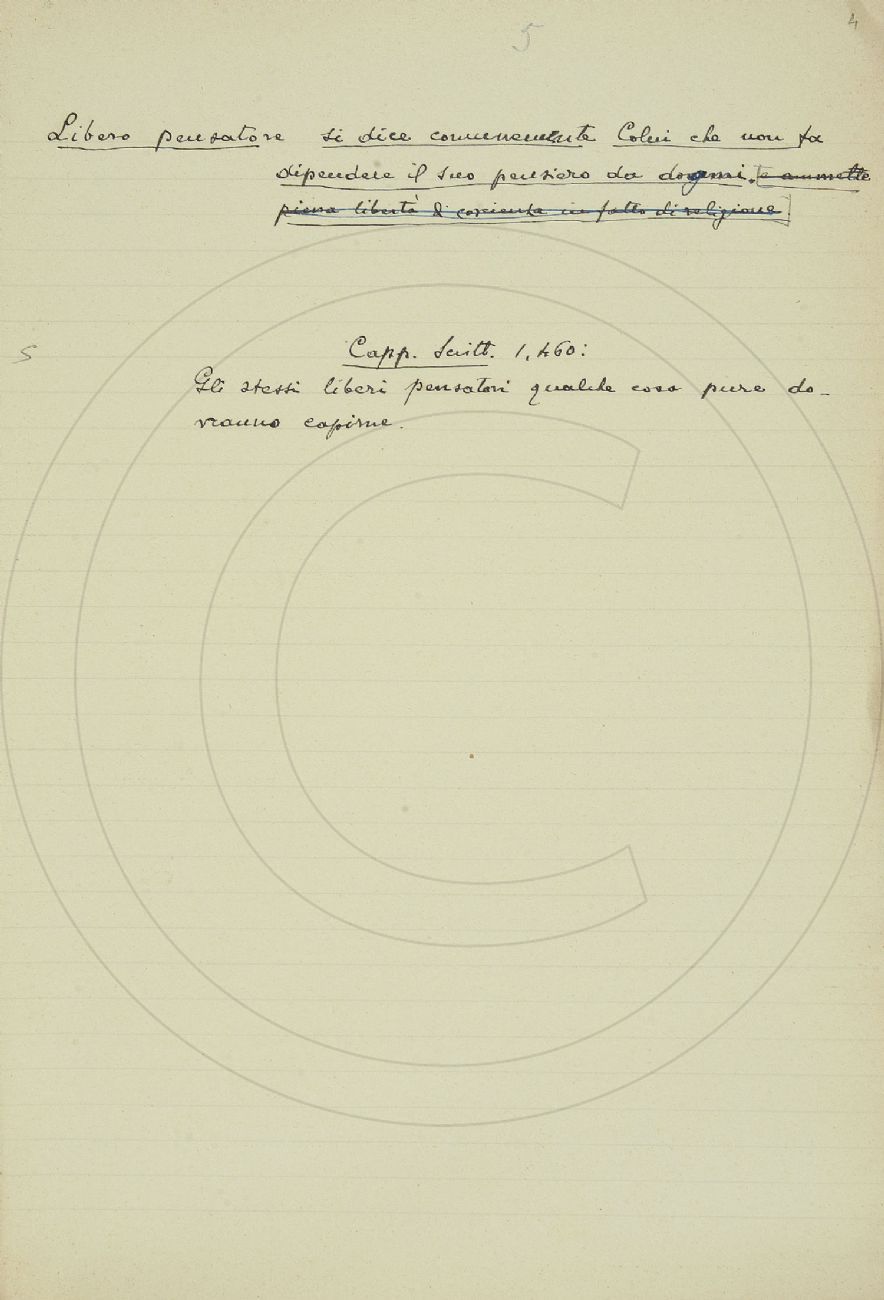 5
4
Libero pensatore si dice comunemente Colui che non fa
dipendere il suo pensiero da dogmi. [e ammette
piena libertà di coscienza in fatto di religione]
5
Capp. Scritt. 1, 460:
Gli stessi liberi pensatori qualche cosa pure do-
vranno capirne.